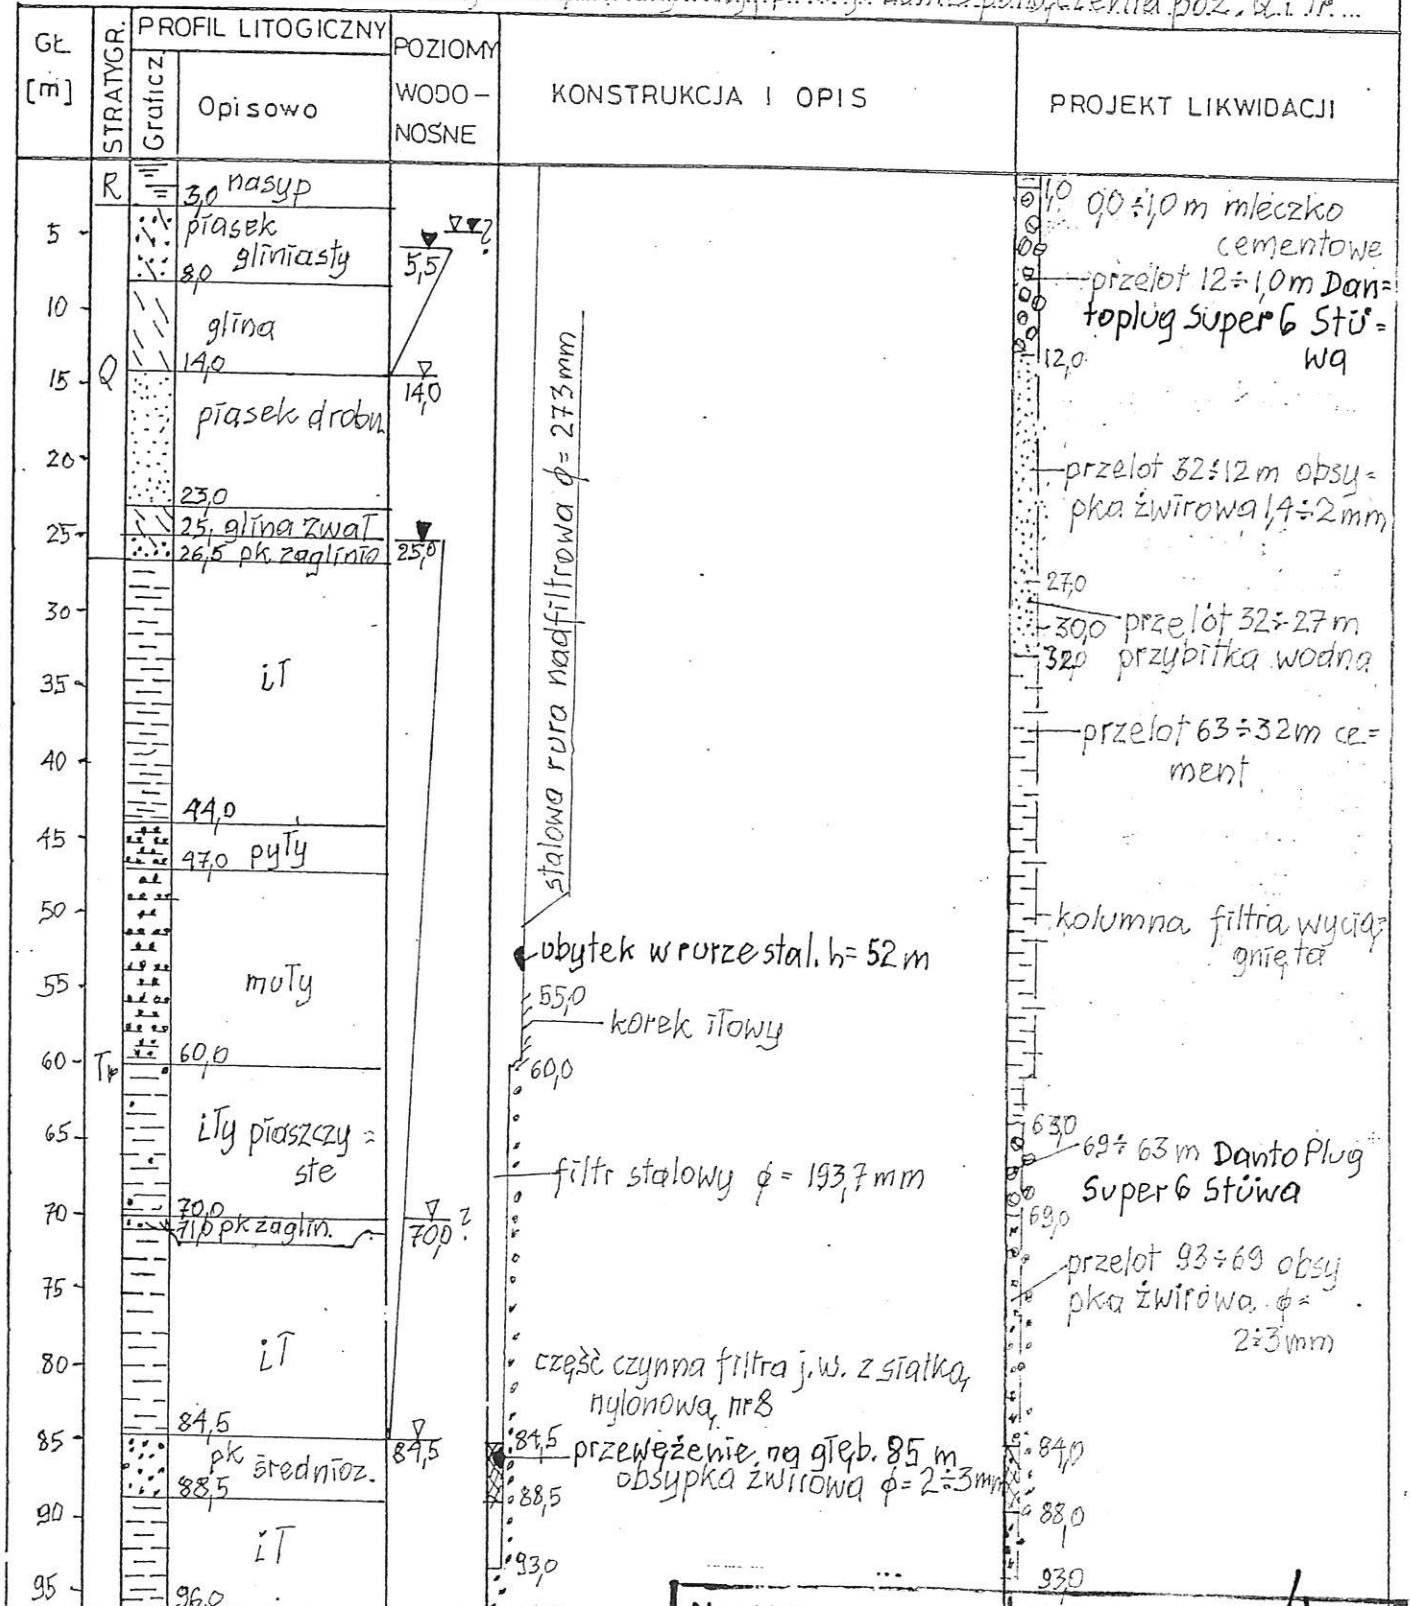 GŁ.
[m]
STRATYGR.
PROFIL LITOGICZNY
Graficz.
Opisowo
POZIOMY
WODO-
NOŚNE
KONSTRUKCJA I OPIS
PROJEKT LIKWIDACJI
5
10
15
20
25
30
35
40
45
50
55
60
65
70
75
80
85
90
95
R
Q
Tr
3,0 nasyp
piasek
gliniasty
8,0
glina
14,0
piasek drobn.
23,0
25, glina zwał
26,5 pk zaglinio
ił
44,0
47,0 pyły
muły
60,0
iły piaszczy=
ste
70,0
71,0 pk zaglin.
ił
84,5
pk średnioz.
88,5
ił
96,0
?
5,5
14,0
25,0
70,0 ?
84,5
stalowa rura nadfiltrowa φ= 273mm
ubytek w rurze stal. h= 52 m
55,0
korek iłowy
60,0
filtr stalowy φ= 193,7mm
część czynna filtra j.w. z siatką
nylonową nr8
84,5
przewężenie na głęb. 85 m
obsypka żwirowa φ= 2÷3mm
88,5
93,0
1,0
0,0÷1,0m mleczko
cementowe
przelot 12÷1,0m Dan=
toplug Super 6 Stü=
wa
12,0
przelot 32÷12m obsy=
pka żwirowa 1,4÷2mm
27,0
przelot 32÷27m
30,0
przybitka wodna
32,0
przelot 63÷32m ce=
ment
kolumna filtra wycią=
gnięta
63,0
69÷63m Danto Plug
Super 6 Stüwa
69,0
przelot 93÷69 obsy
pka żwirowa φ=
2÷3mm
84,0
88,0
93,0